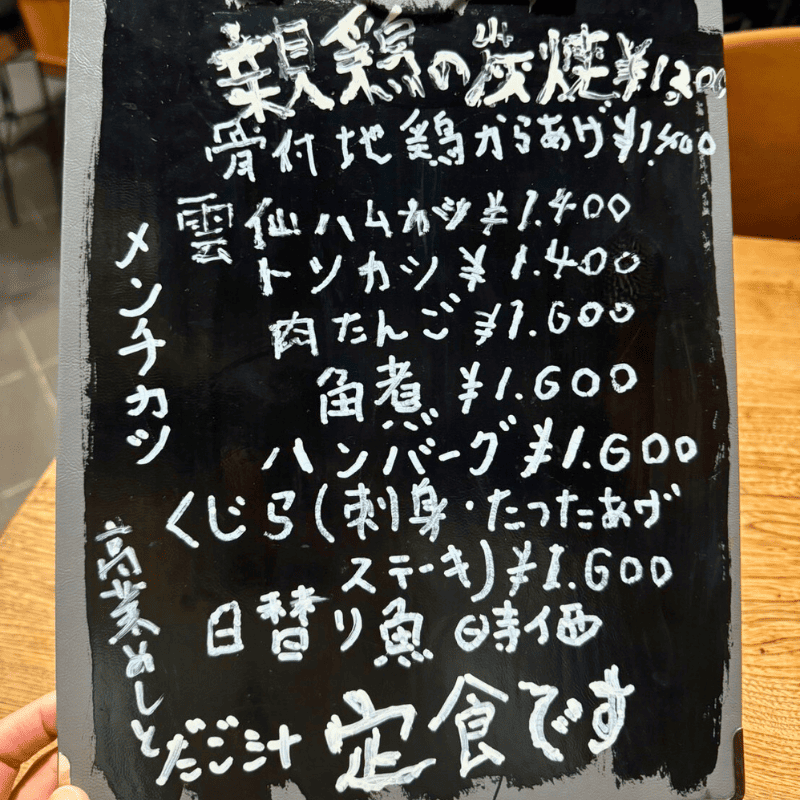 親鶏の炭焼¥1,200
骨付地鶏からあげ¥1.400
雲仙ハムカツ¥1.400
トンカツ¥1.400
肉たんご¥1.600
角煮¥1.600
ハンバーグ¥1.600
くじら(刺身・たったあげ
ステーキ)¥1.600
日替り魚 時価
メンチカツ
高菜めしと
だご汁 定食です